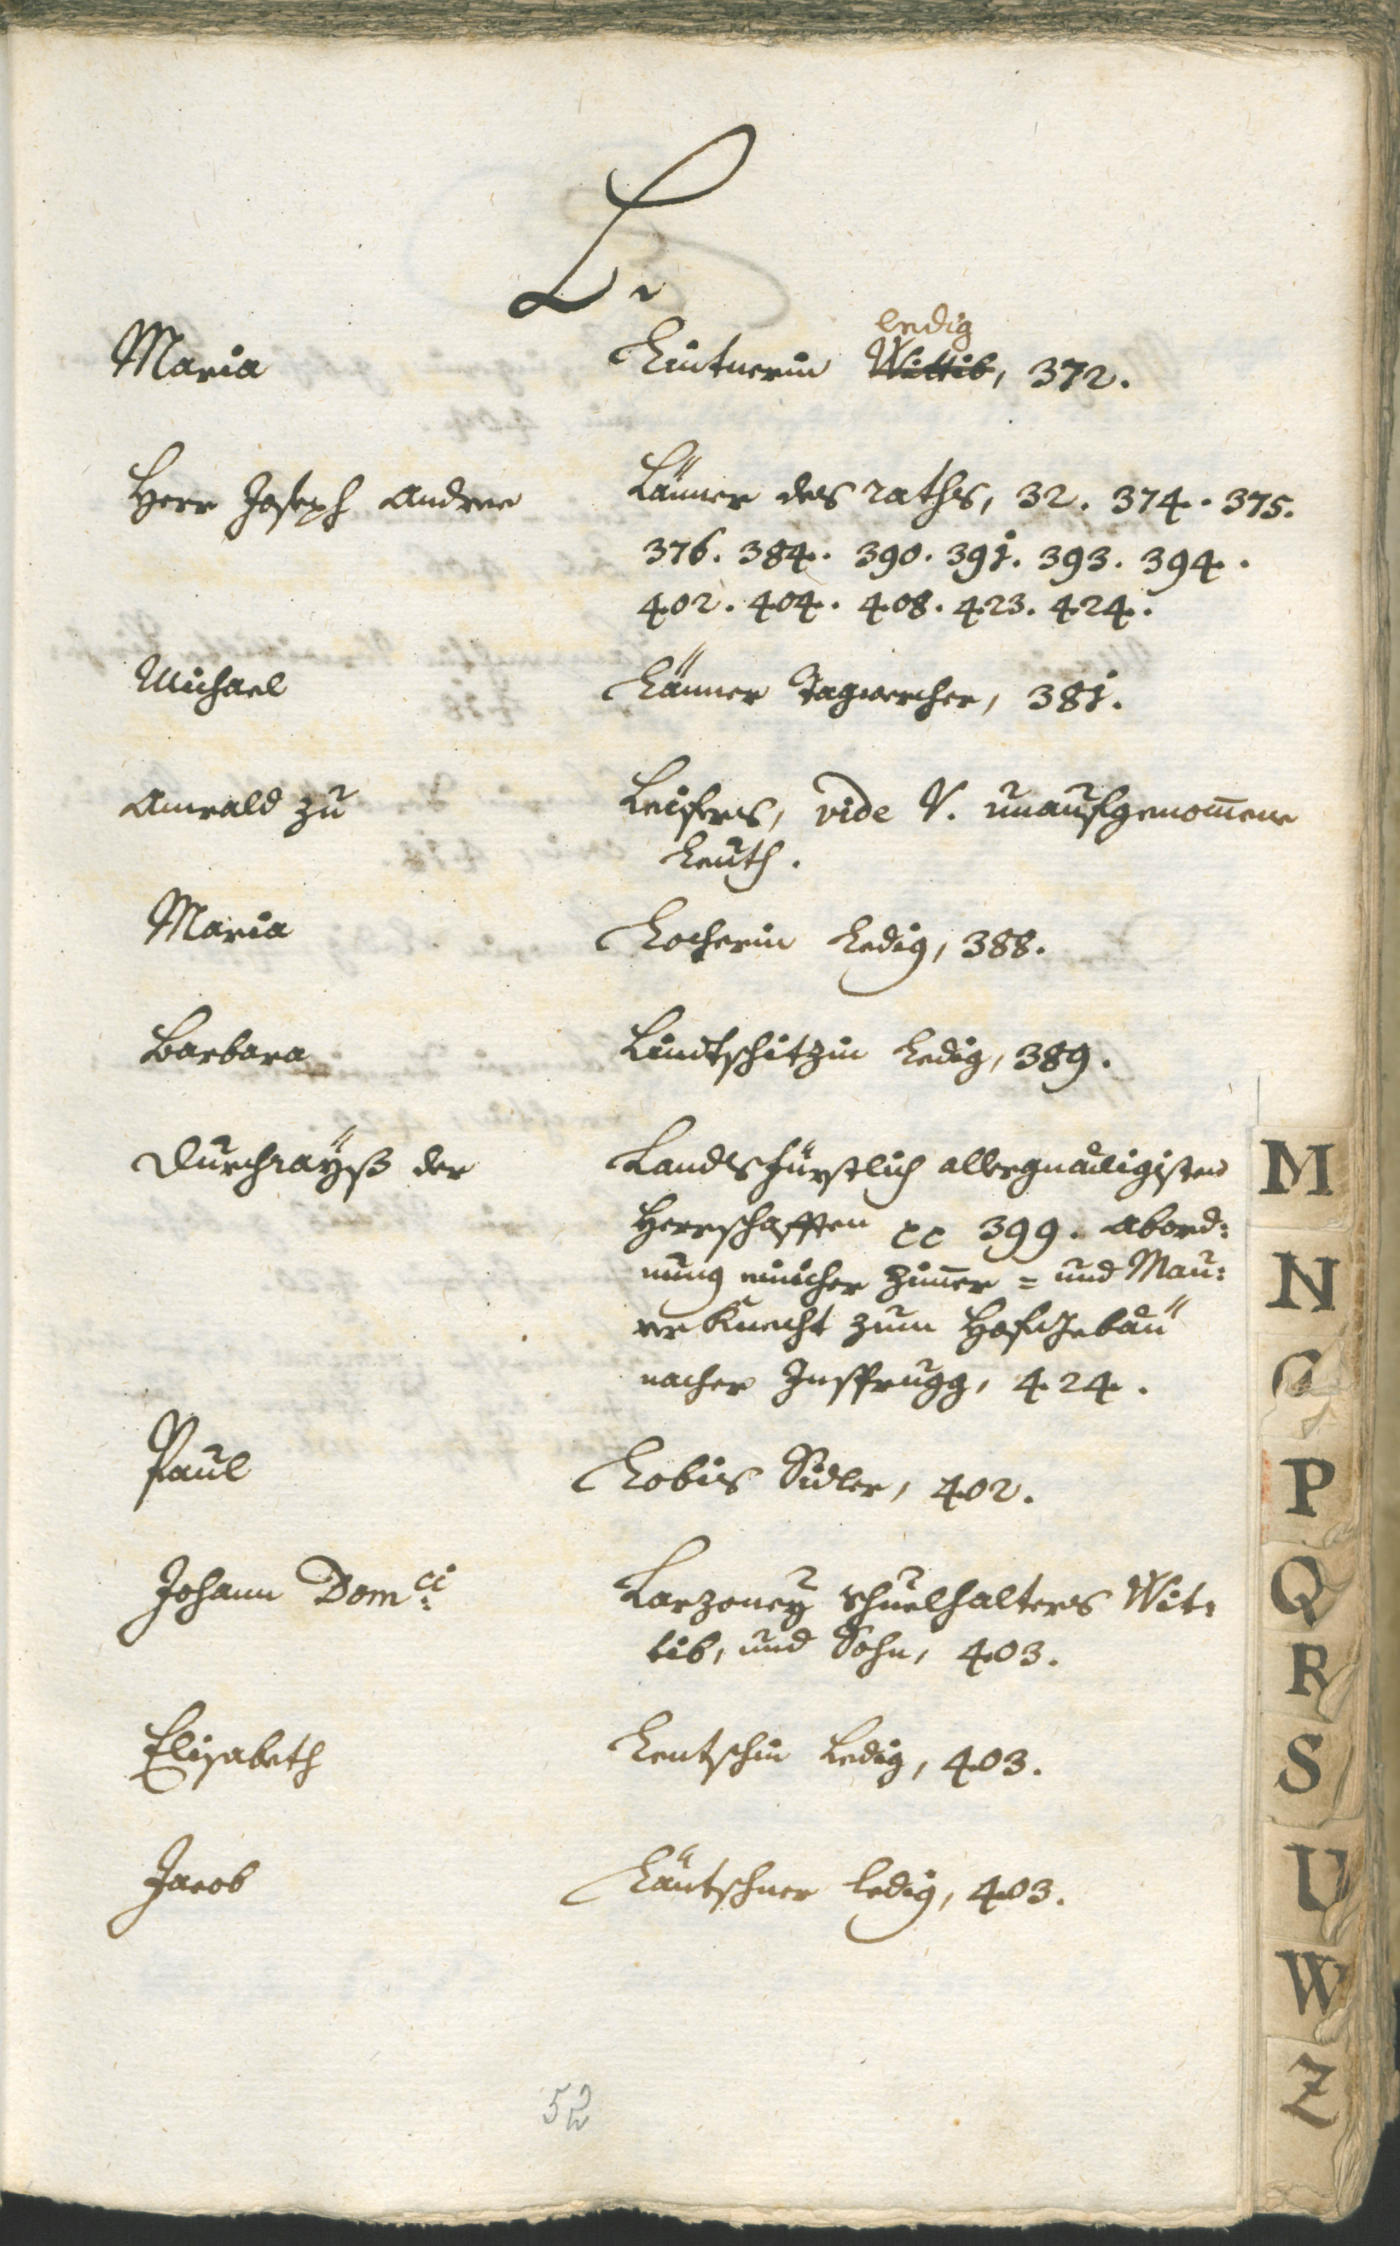 L.
ledig
Maria Lintnerin Wittib, 372.
Herr Joseph Andree Länner des raths, 32. 374. 375.
376. 384. 390. 391. 393. 394.
402. 404. 408. 423. 424.
Michael Länner Tagwercher, 381.
Anwald zu Leifers, vide V. unaufgenom̄ene
Leuth.
Maria Locherin Ledig, 388.
Barbara Lindtschitzin Ledig, 389.
Durchräyß der Landsfürstlich allergnädigisten
Herrschafften 399. Abord:
nung einicher Zim̄er = und Mau:
rer Knecht zum HofGebäu
nacher Insprugg, 424.
Paul Lobis Sidler, 402.
Johann Dom.ci Larzoney Schuelhalters Wit:
tib, und Sohn, 403.
Elisabeth Lentschin Ledig, 403.
Jacob Läntschner ledig, 403.
52
M
N
O
P
Q
R
S
U
W
Z